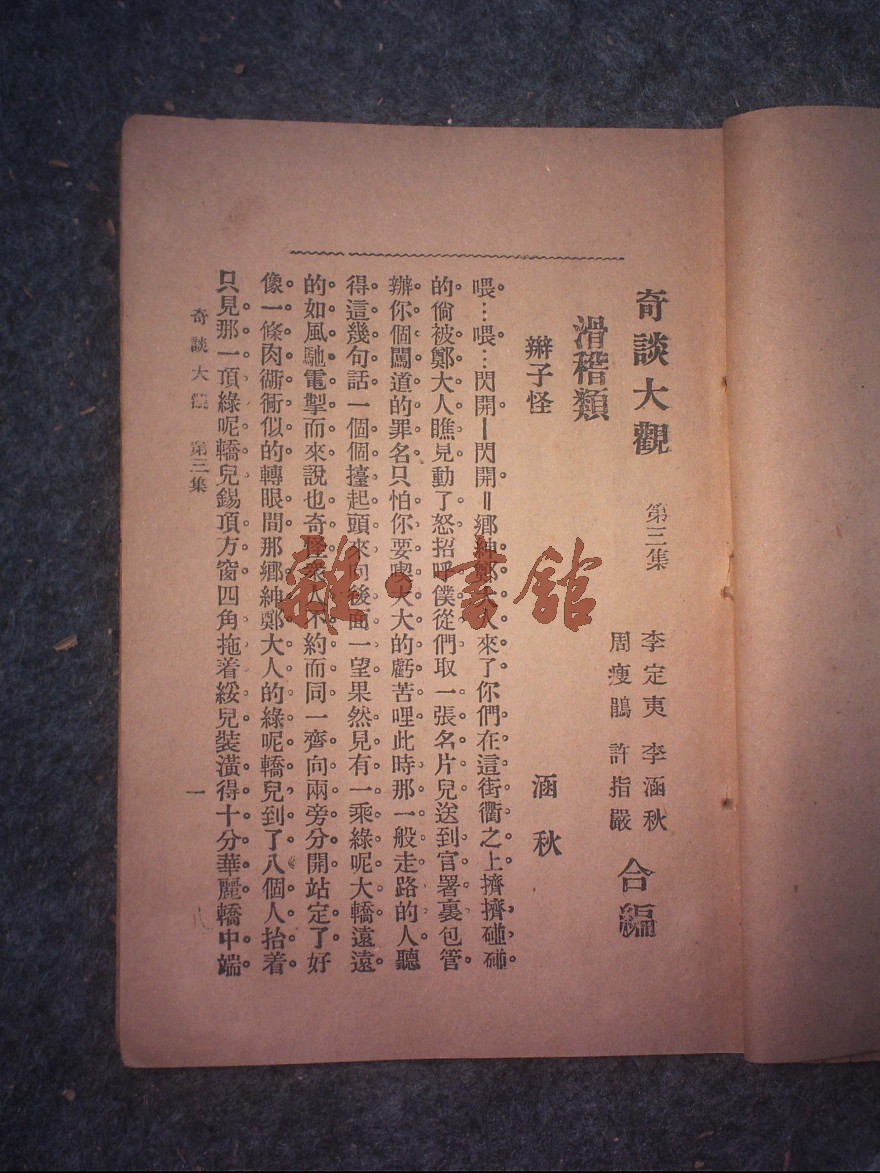 奇談大觀 第三集 李定夷 李涵秋 周瘦鵑 許指嚴 合編
滑稽類
辮子怪 涵秋
喂…喂…閃開—閃開‖鄉紳鄭大人來了你們在這街衢之上擠擠碰碰
的倘被鄭大人瞧見動了怒招呼僕從們取一張名片兒送到官署裏包管
辦你個闖道的罪名只怕你要喫大大的虧苦哩此時那一般走路的人聽
得這幾句話一個個擡起頭來向後面一望果然見有一乘綠呢大轎遠遠
的如風馳電掣而來說也奇怪衆人不約而同一齊向兩旁分開站定了好
像一條肉衚衕似的轉眼間那鄉紳鄭大人的綠呢轎兒到了八個人抬着
只見那一頂綠呢轎兒錫頂方窗四角拖着綏兒裝潢得十分華麗轎中端
奇談大觀 第三集 一
雜·書館